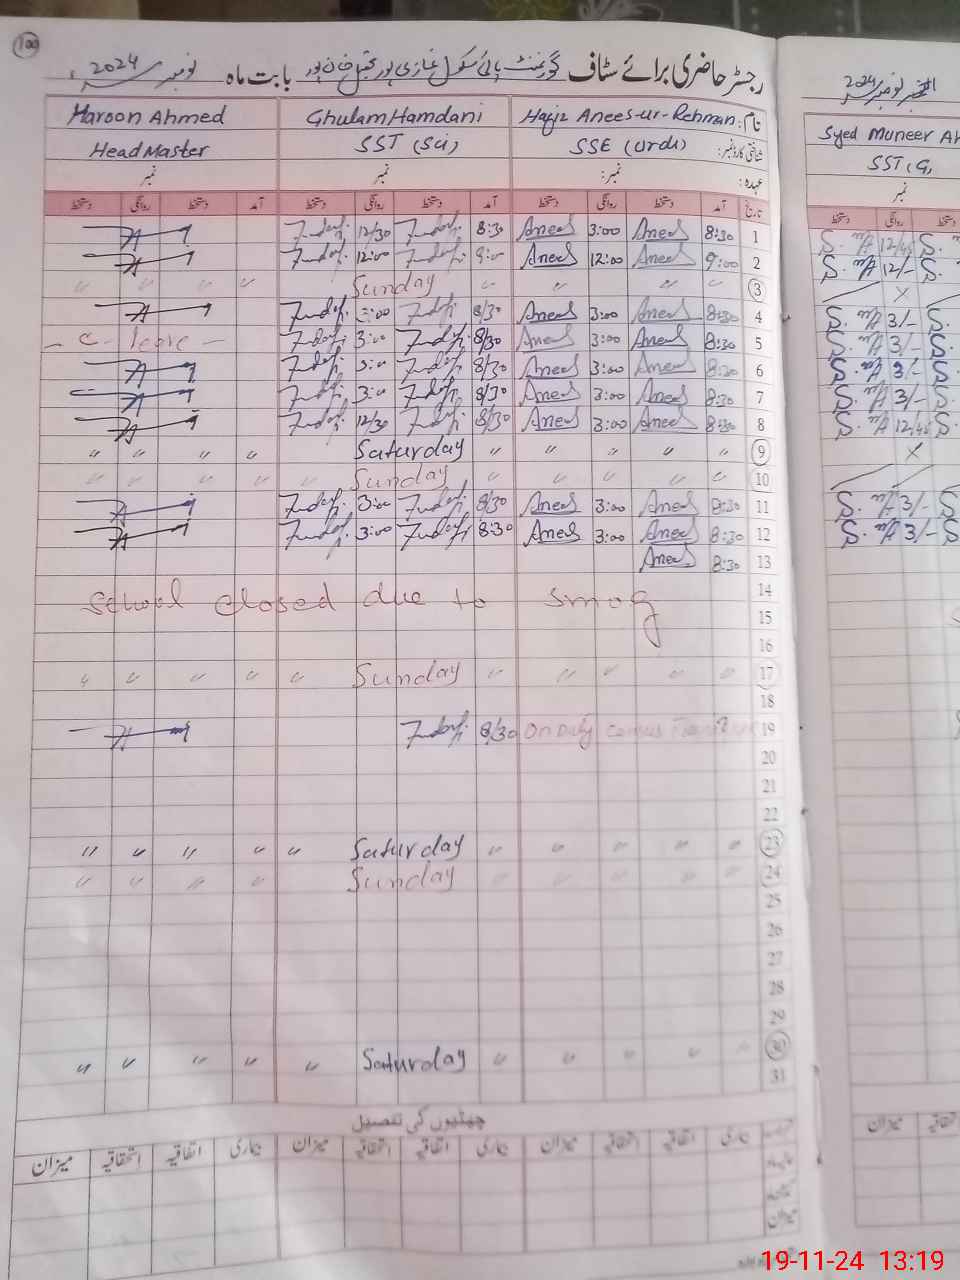 100
رجسٹر حاضری برائے سٹاف گورنمنٹ ہائی سکول غازی پور تحصیل خان پور بابت ماہ نومبر 2024
نام: Hafiz Anees-ur-Rehman Ghulam Hamdani Haroon Ahmed
شناختی کارڈ نمبر: SSE (Urdu) SST (Sci) Head Master
عہدہ: نمبر: نمبر نمبر
تاریخ آمد دستخط روانگی دستخط آمد دستخط روانگی دستخط آمد دستخط روانگی دستخط
1 8:30 Anees 3:00 Anees 8:30 12/30
2 9:00 Anees 12:00 Anees 9:00 12:00
3 " " " Sunday " " " "
4 8:30 Anees 3:00 Anees 8/30 3:00
5 8:30 Anees 3:00 Anees 8/30 3:00 - C - leave -
6 8:30 Anees 3:00 Anees 8/30 3:00
7 8:30 Anees 3:00 Anees 8/30 3:00
8 8:30 Anees 3:00 Anees 8/30 12/30
9 " " " " " Saturday " " " "
10 " " " " " Sunday " " " "
11 8:30 Anees 3:00 Anees 8/30 3:00
12 8:30 Anees 3:00 Anees 8:30 3:00
13 8:30 Anees
14
School closed due to smog
15
16
17 " " " " " Sunday " " " " "
18
19 On Duty 8/30
20
21
22
23 " " " " " Saturday " " " " "
24 " " " " " Sunday " " " "
25
26
27
28
29
30 " " " " " Saturday " " " " "
31
چھٹیوں کی تفصیل
بیماری اتفاقیہ استحقاقیہ میزان بیماری اتفاقیہ استحقاقیہ میزان بیماری اتفاقیہ استحقاقیہ میزان
میزان
نومبر 2024
Syed Muneer
SST (G
نمبر
دستخط روانگی دستخط
12/45
12/-
×
3/-
3/-
3/-
3/-
12/45
×
3/-
3/-
میزان
19-11-24 13:19